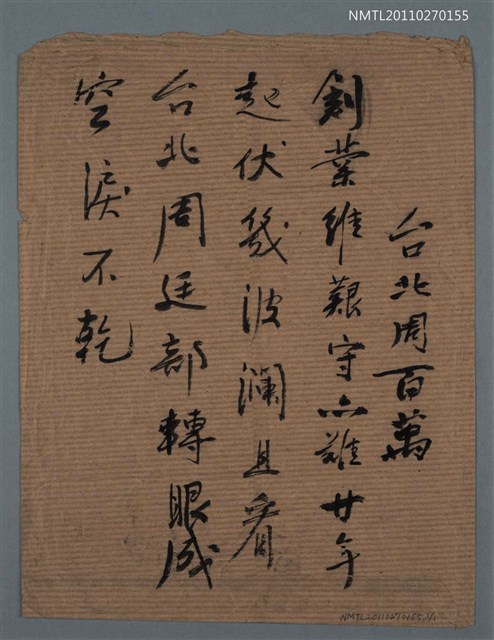 NMTL20110270155
台北周百萬
創業維艱守亦難廿年
起伏幾波瀾且看
台北周廷部轉眼成
空淚不乾
NMTL20110270155,1/1